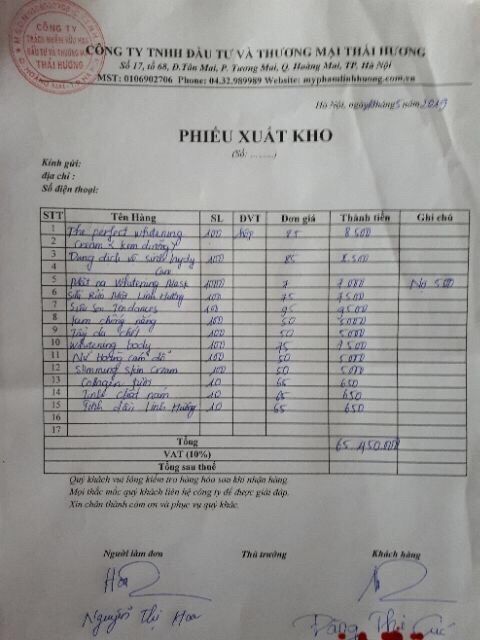 CÔNG TY
TRÁCH NHIỆM HỮU HẠN
ĐẦU TƯ VÀ THƯƠNG MẠI
THÁI HƯƠNG
CÔNG TY TNHH ĐẦU TƯ VÀ THƯƠNG MẠI THÁI HƯƠNG
Số 17, tổ 68, Đ.Tân Mai, P. Tương Mai, Q. Hoàng Mai, TP. Hà Nội
MST: 0106902706 Phone: 04.32.989989 Website: myphamlinhhuong.com.vn
Hà Nội, ngày tháng 5 năm 2019
PHIẾU XUẤT KHO
(Số: ........)
Kính gửi:
địa chỉ :
Số điện thoại:
STT Tên Hàng SL ĐVT Đơn giá Thành tiền Ghi chú
1 The perfect whitening 100 hộp 85 8500
2 Cream
3 Dung dịch vệ sinh 100 85 8.500
4 Care
5 Mặt nạ Whitening Mask 1000 7 7.000 Nợ 500
6 Sữa Rửa Mặt Linh Hương 100 75 7500
7 100 95 9500
8 kem chống nắng 100 50 5000
9 Tẩy da chết 100 50 5000
10 Whitening body 100 75 7500
11 100 50 5000
12 Slimming skin cream 100 50 5000
13 Collagen tươi 10 65 650
14 Tinh chất nám 10 65 650
15 Tinh dầu Linh Hương 10 65 650
16
17
Tổng 65.450.000
VAT (10%)
Tổng sau thuế
Quý khách vui lòng kiểm tra hàng hóa sau khi nhận hàng.
Mọi thắc mắc quý khách liên hệ công ty để được giải đáp.
Xin chân thành cảm ơn và phục vụ quý khác.
Người làm đơn Thủ trưởng Khách hàng
Hoa
Nguyễn Thị Hoa Đặng Thị Cúc